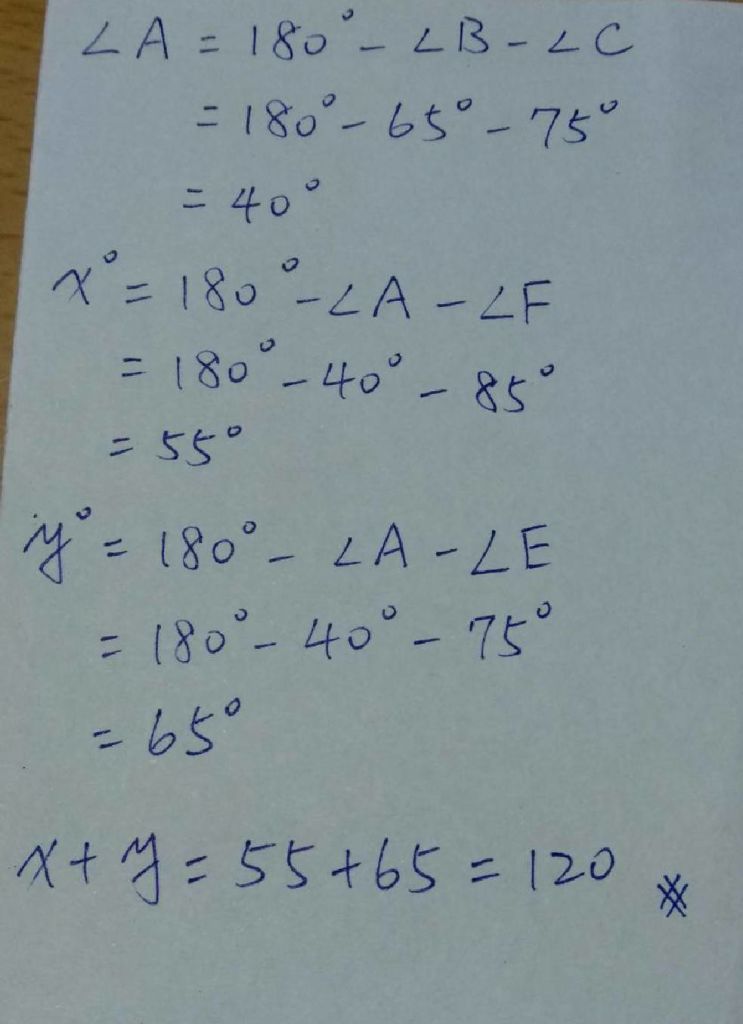 ∠A = 180° - ∠B - ∠C
= 180° - 65° - 75°
= 40°
x° = 180° - ∠A - ∠F
= 180° - 40° - 85°
= 55°
y° = 180° - ∠A - ∠E
= 180° - 40° - 75°
= 65°
x + y = 55 + 65 = 120 ※